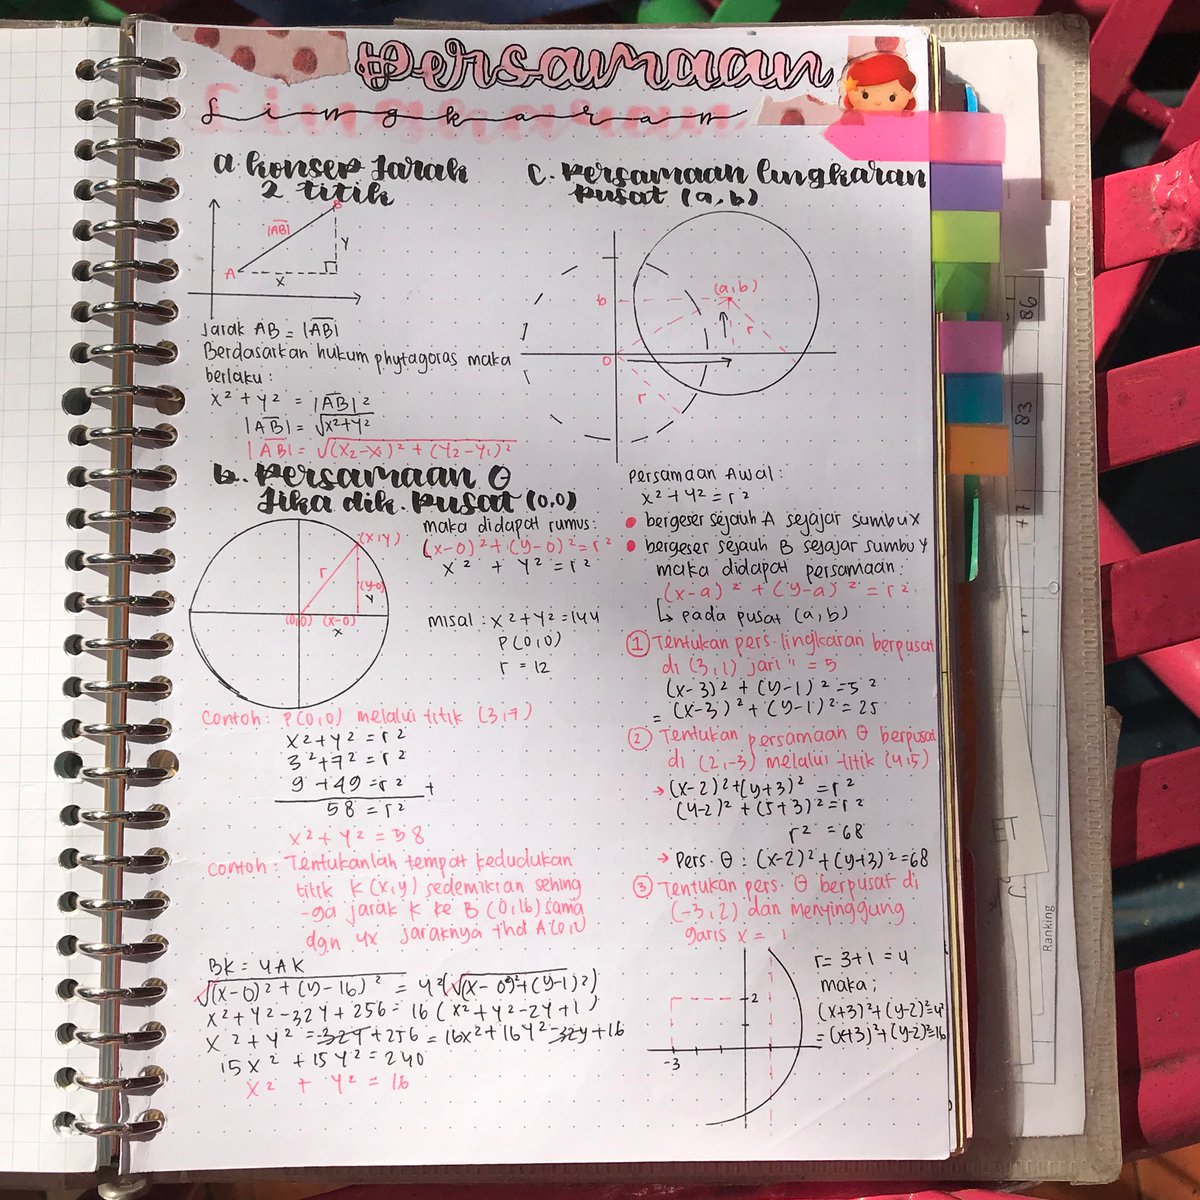 Persamaan
Lingkaran
a. Konsep Jarak
2 titik
|AB|
B
A
x
y
Jarak AB = |AB|
Berdasarkan hukum phytagoras maka
berlaku :
x² + y² = |AB|²
|AB| = √x²+y²
|AB| = √(x₂-x₁)² + (y₂-y₁)²
b. Persamaan ⊙
Jika dik. pusat (0,0)
(x,y)
r
(y-0)
y
(0,0) (x-0)
x
maka didapat rumus:
(x-0)² + (y-0)² = r²
x² + y² = r²
misal : x²+y² = 144
P(0,0)
r = 12
Contoh : P(0,0) melalui titik (3,7)
x²+y² = r²
3²+7² = r²
9+49 = r² +
58 = r²
x²+y² = 58
Contoh : Tentukanlah tempat kedudukan
titik K (x,y) sedemikian sehing
-ga jarak K ke B (0,16) sama
dgn 4x jaraknya thd A(0,1)
BK = 4AK
√(x-0)² + (y-16)² = 4²(√(x-0)²+(y-1)²)
x²+y²-32y+256 = 16(x²+y²-2y+1)
x²+y²-32y+256 = 16x²+16y²-32y+16
15x² + 15y² = 240
x² + y² = 16
C. Persamaan lingkaran
pusat (a,b)
(a,b)
b
r
0
r
Persamaan Awal:
x²+y² = r²
• bergeser sejauh A sejajar sumbu x
• bergeser sejauh B sejajar sumbu y
maka didapat persamaan:
(x-a)² + (y-a)² = r²
↳ pada pusat (a,b)
① Tentukan pers. lingkaran berpusat
di (3,1) jari" = 5
(x-3)² + (y-1)² = 5²
= (x-3)² + (y-1)² = 25
② Tentukan persamaan ⊙ berpusat
di (2,-3) melalui titik (4,5)
→ (x-2)²+(y+3)² = r²
(4-2)² + (5+3)² = r²
r² = 68
→ Pers. ⊙ : (x-2)²+(y+3)² = 68
③ Tentukan pers. ⊙ berpusat di
(-3,2) dan menyinggung
garis x = 1
2
-3
r = 3+1 = 4
maka :
(x+3)²+(y-2)²=4²
= (x+3)²+(y-2)²=16
86
83
+7
Ranking